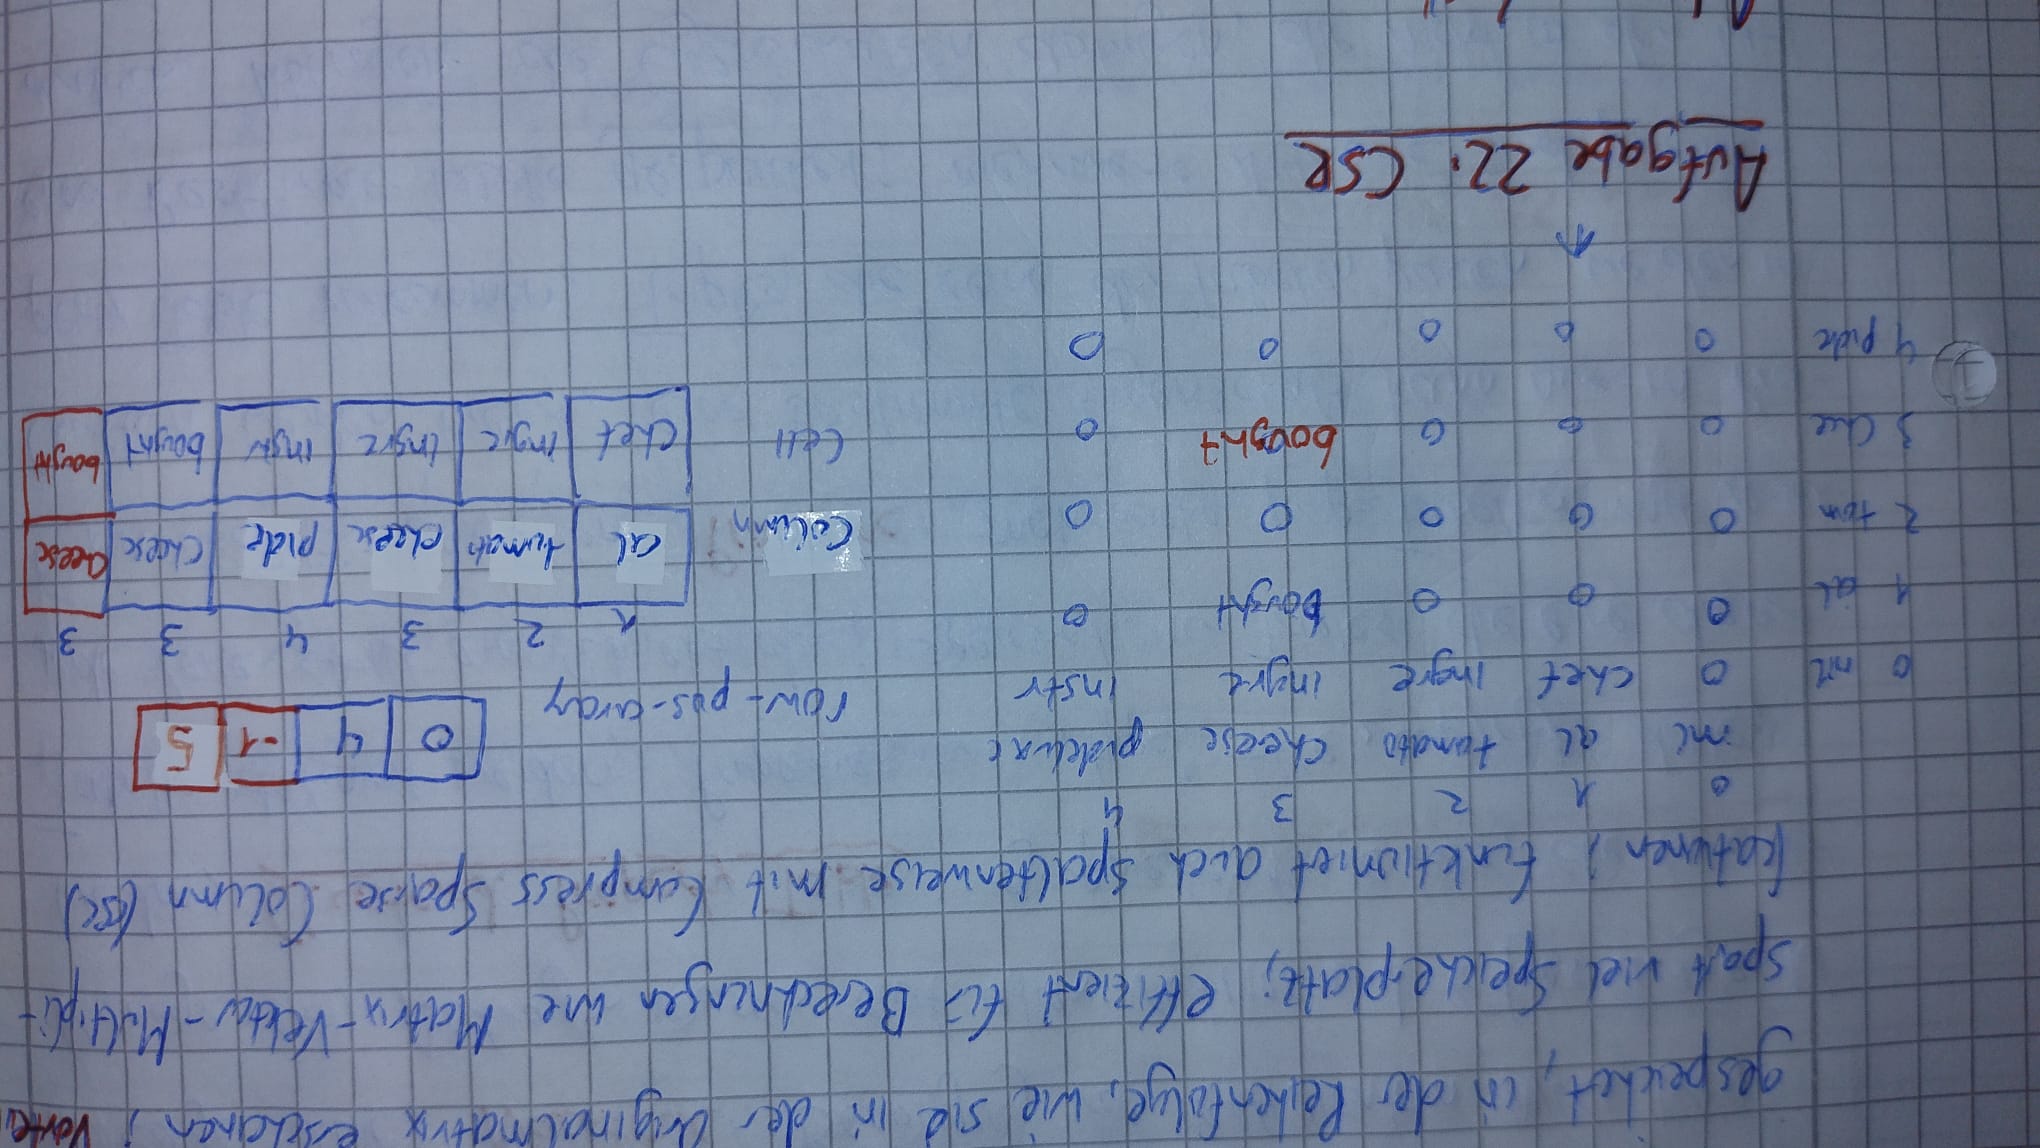 gespeichert, in der Reihenfolge, wie sie in der Originalmatrix erscheinen; Vortei
spart viel Speicherplatz; effizient für Berechnungen wie Matrix-Vektor-Multipli-
kationen; funktioniert auch spaltenweise mit Compress Sparse Column (CSC)
0 1 2 3 4
al tomato cheese
0 0 chef ingre ingre instr
1 al 0 0 0 bought 0
2 tom 0 0 0 0 0
3 chee 0 0 0 bought 0
4 pide 0 0 0 0 0
row-pos-array 0 4 -1 5
1 2 3 4 3 3
Column al tomato cheese pide cheese cheese
Cell chef ingre ingre instr bought bought
Aufgabe 22. CSR